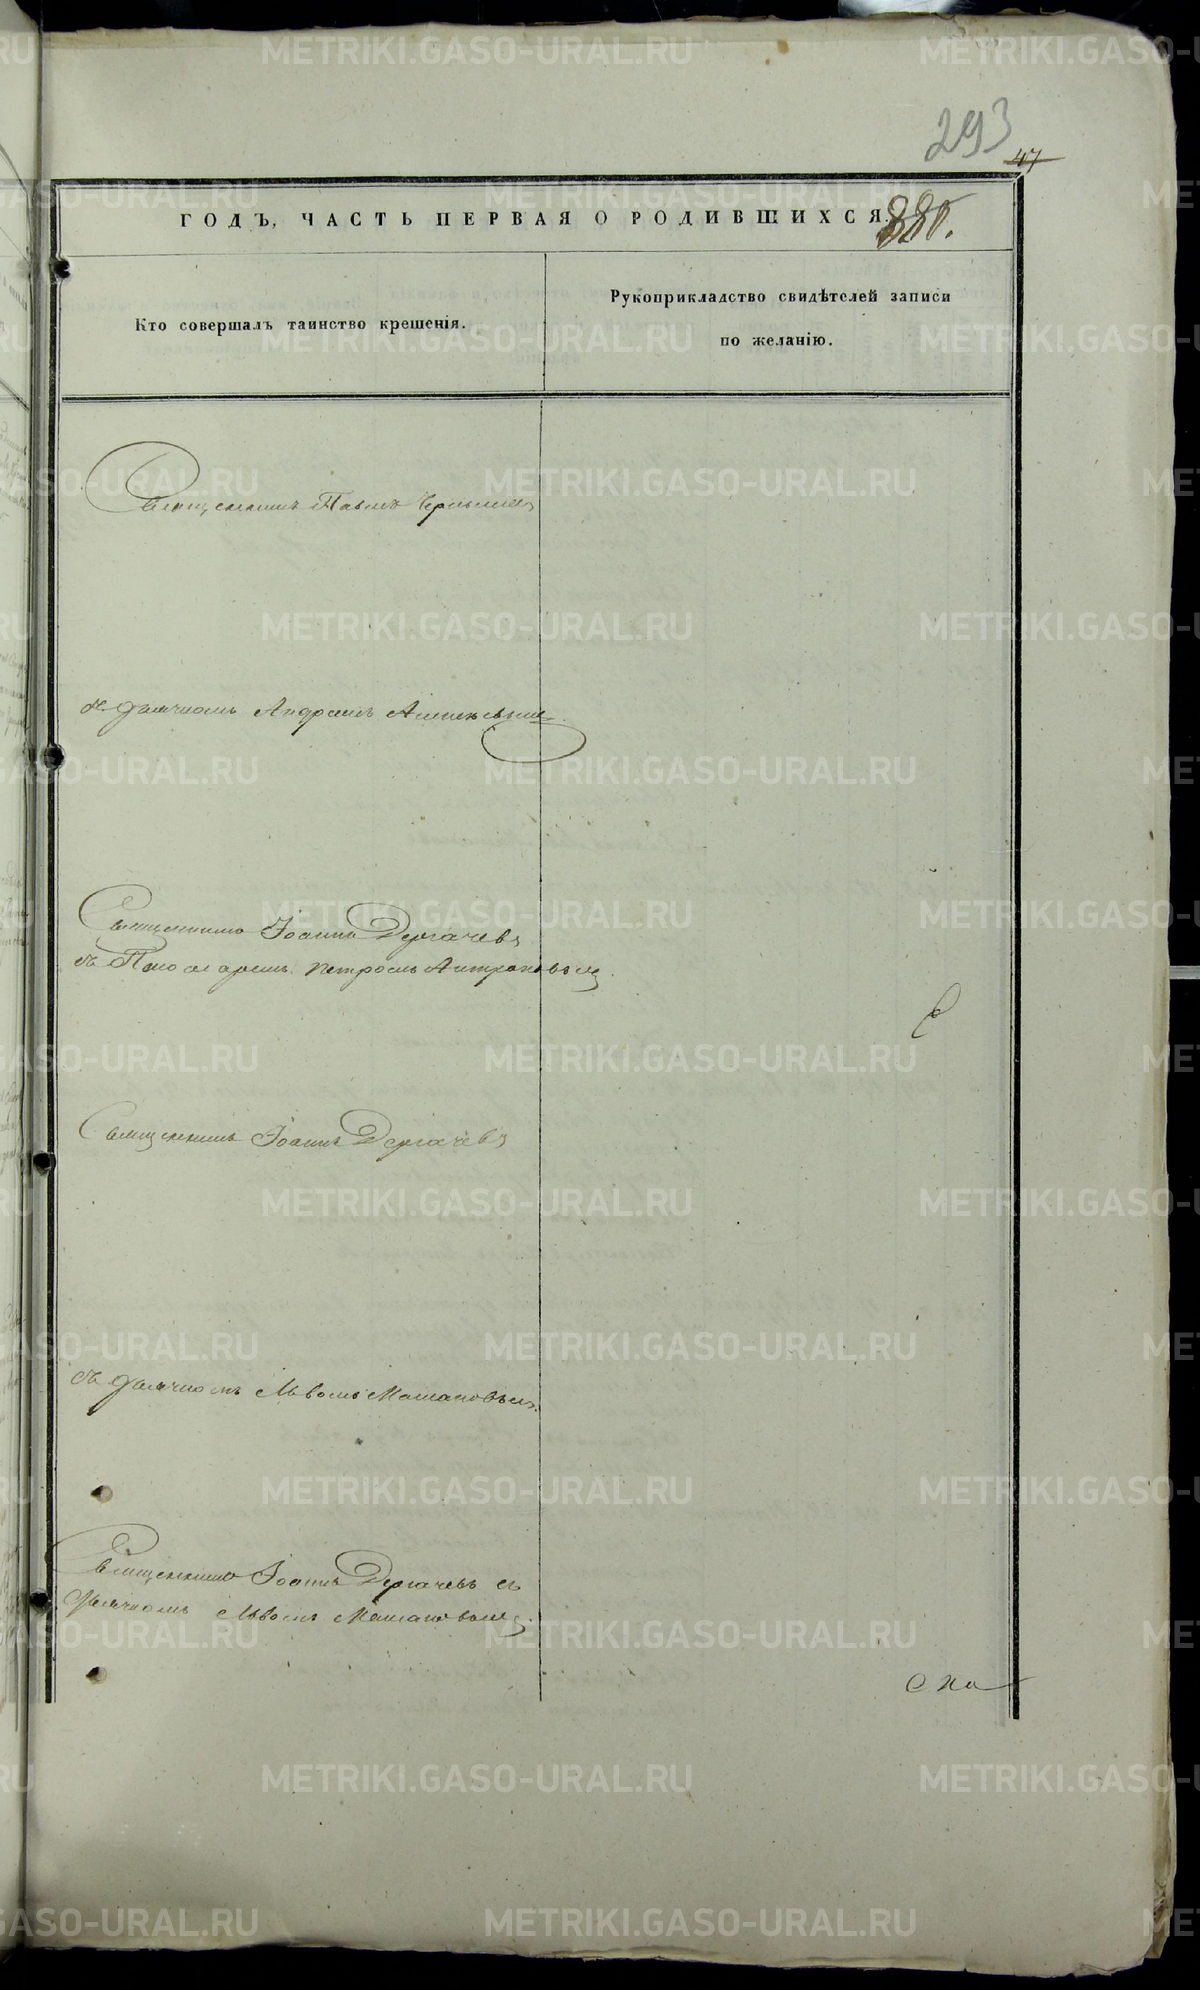 293
47
ГОДЪ, ЧАСТЬ ПЕРВАЯ О РОДИВШИХСЯ.
880.
Кто совершалъ таинство крещенія.
Рукоприкладство свидѣтелей записи
по желанію.
Священникъ Павелъ
съ дьячкомъ Андреемъ
Священникъ Іоаннъ Дергачевъ
съ Пономаремъ Петромъ
Священникъ Іоаннъ Дергачевъ
съ дьячкомъ Львомъ
Священникъ Іоаннъ Дергачевъ съ
дьячкомъ Львомъ
METRIKI.GASO-URAL.RU